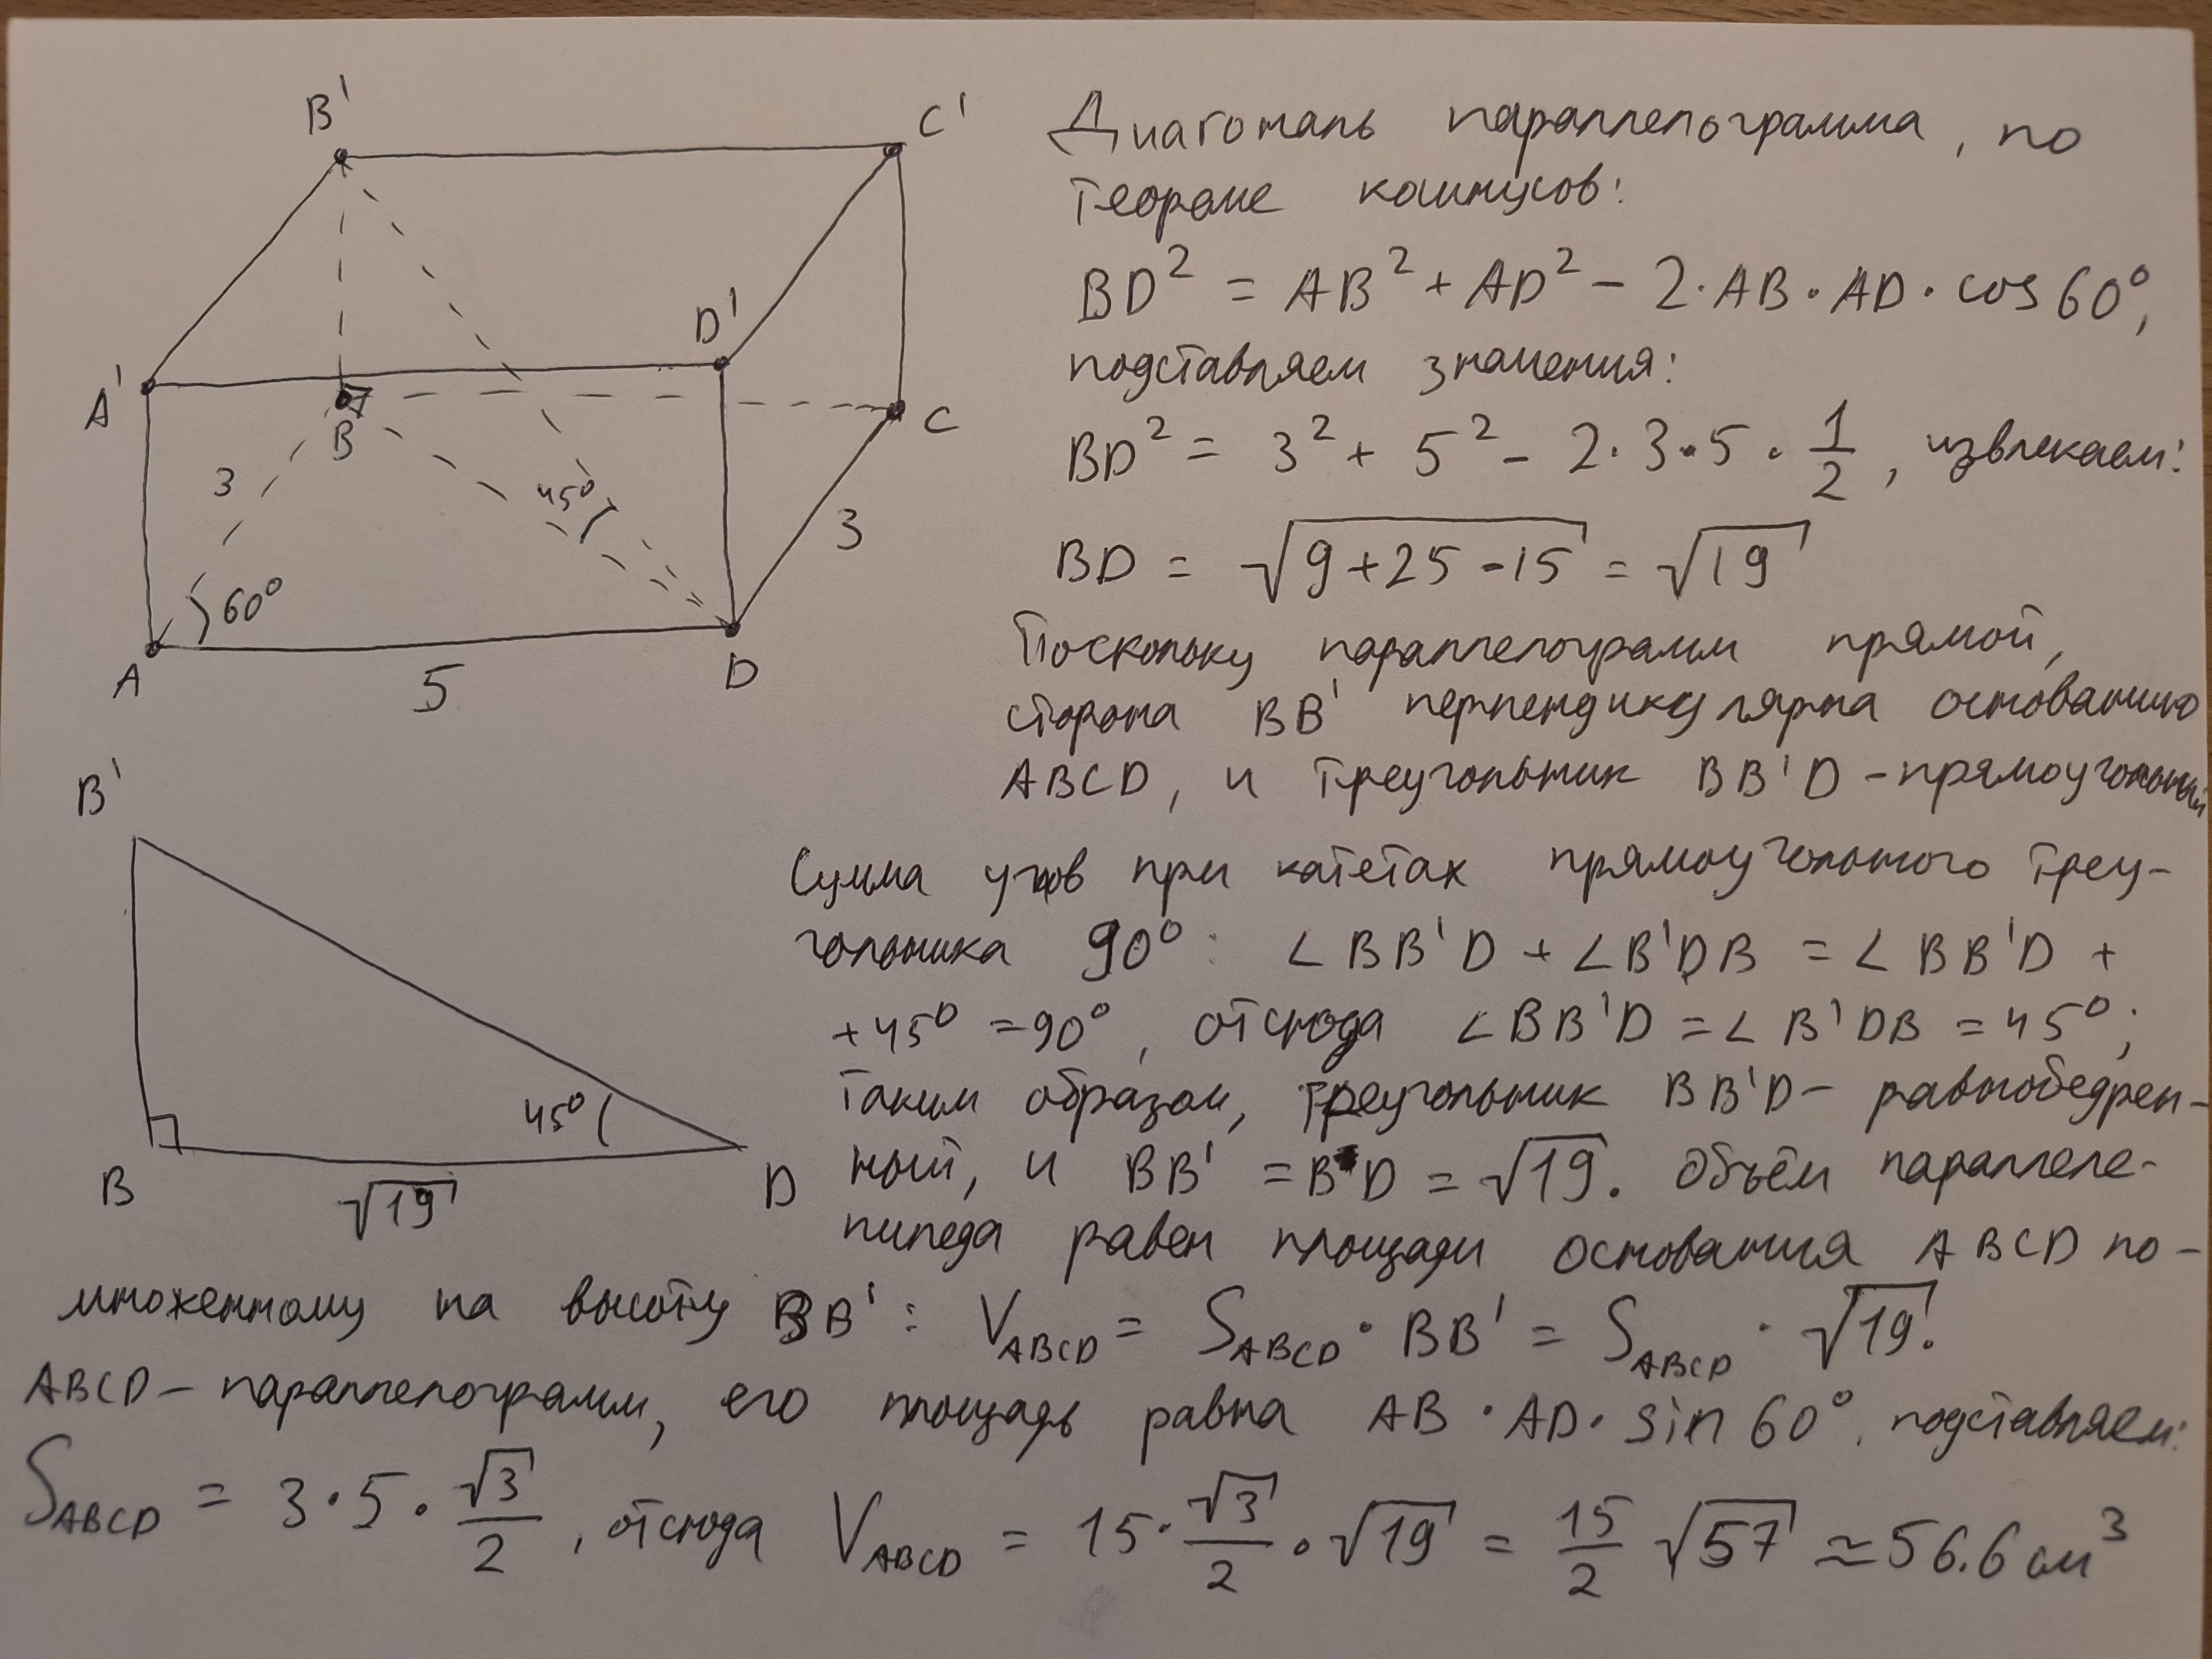 B'
C'
D'
A'
B
C
3
45°
3
60°
A
5
D
Диагональ параллелограмма, по
теореме косинусов:
BD² = AB² + AD² - 2·AB·AD·cos 60°,
подставляем значения:
BD² = 3² + 5² - 2·3·5·1/2, извлекаем:
BD = √(9+25-15) = √19
Поскольку параллелограмм прямой,
сторона BB' перпендикулярна основанию
ABCD, и треугольник BB'D - прямоугольный
B'
B
√19
45°
D
Сумма углов при катетах прямоугольного треу-
гольника 90°: ∠BB'D + ∠B'DB = ∠BB'D +
+45° = 90°, отсюда ∠BB'D = ∠B'DB = 45°;
таким образом, треугольник BB'D - равнобедрен-
ный, и BB' = BD = √19. Объём параллеле-
пипеда равен площади основания ABCD по-
множенному на высоту BB': V_ABCD = S_ABCD · BB' = S_ABCD · √19.
ABCD - параллелограмм, его площадь равна AB·AD·sin 60°, подставляем:
S_ABCD = 3·5·√3/2, отсюда V_ABCD = 15·√3/2·√19 = 15/2 √57 ≈ 56.6 см³